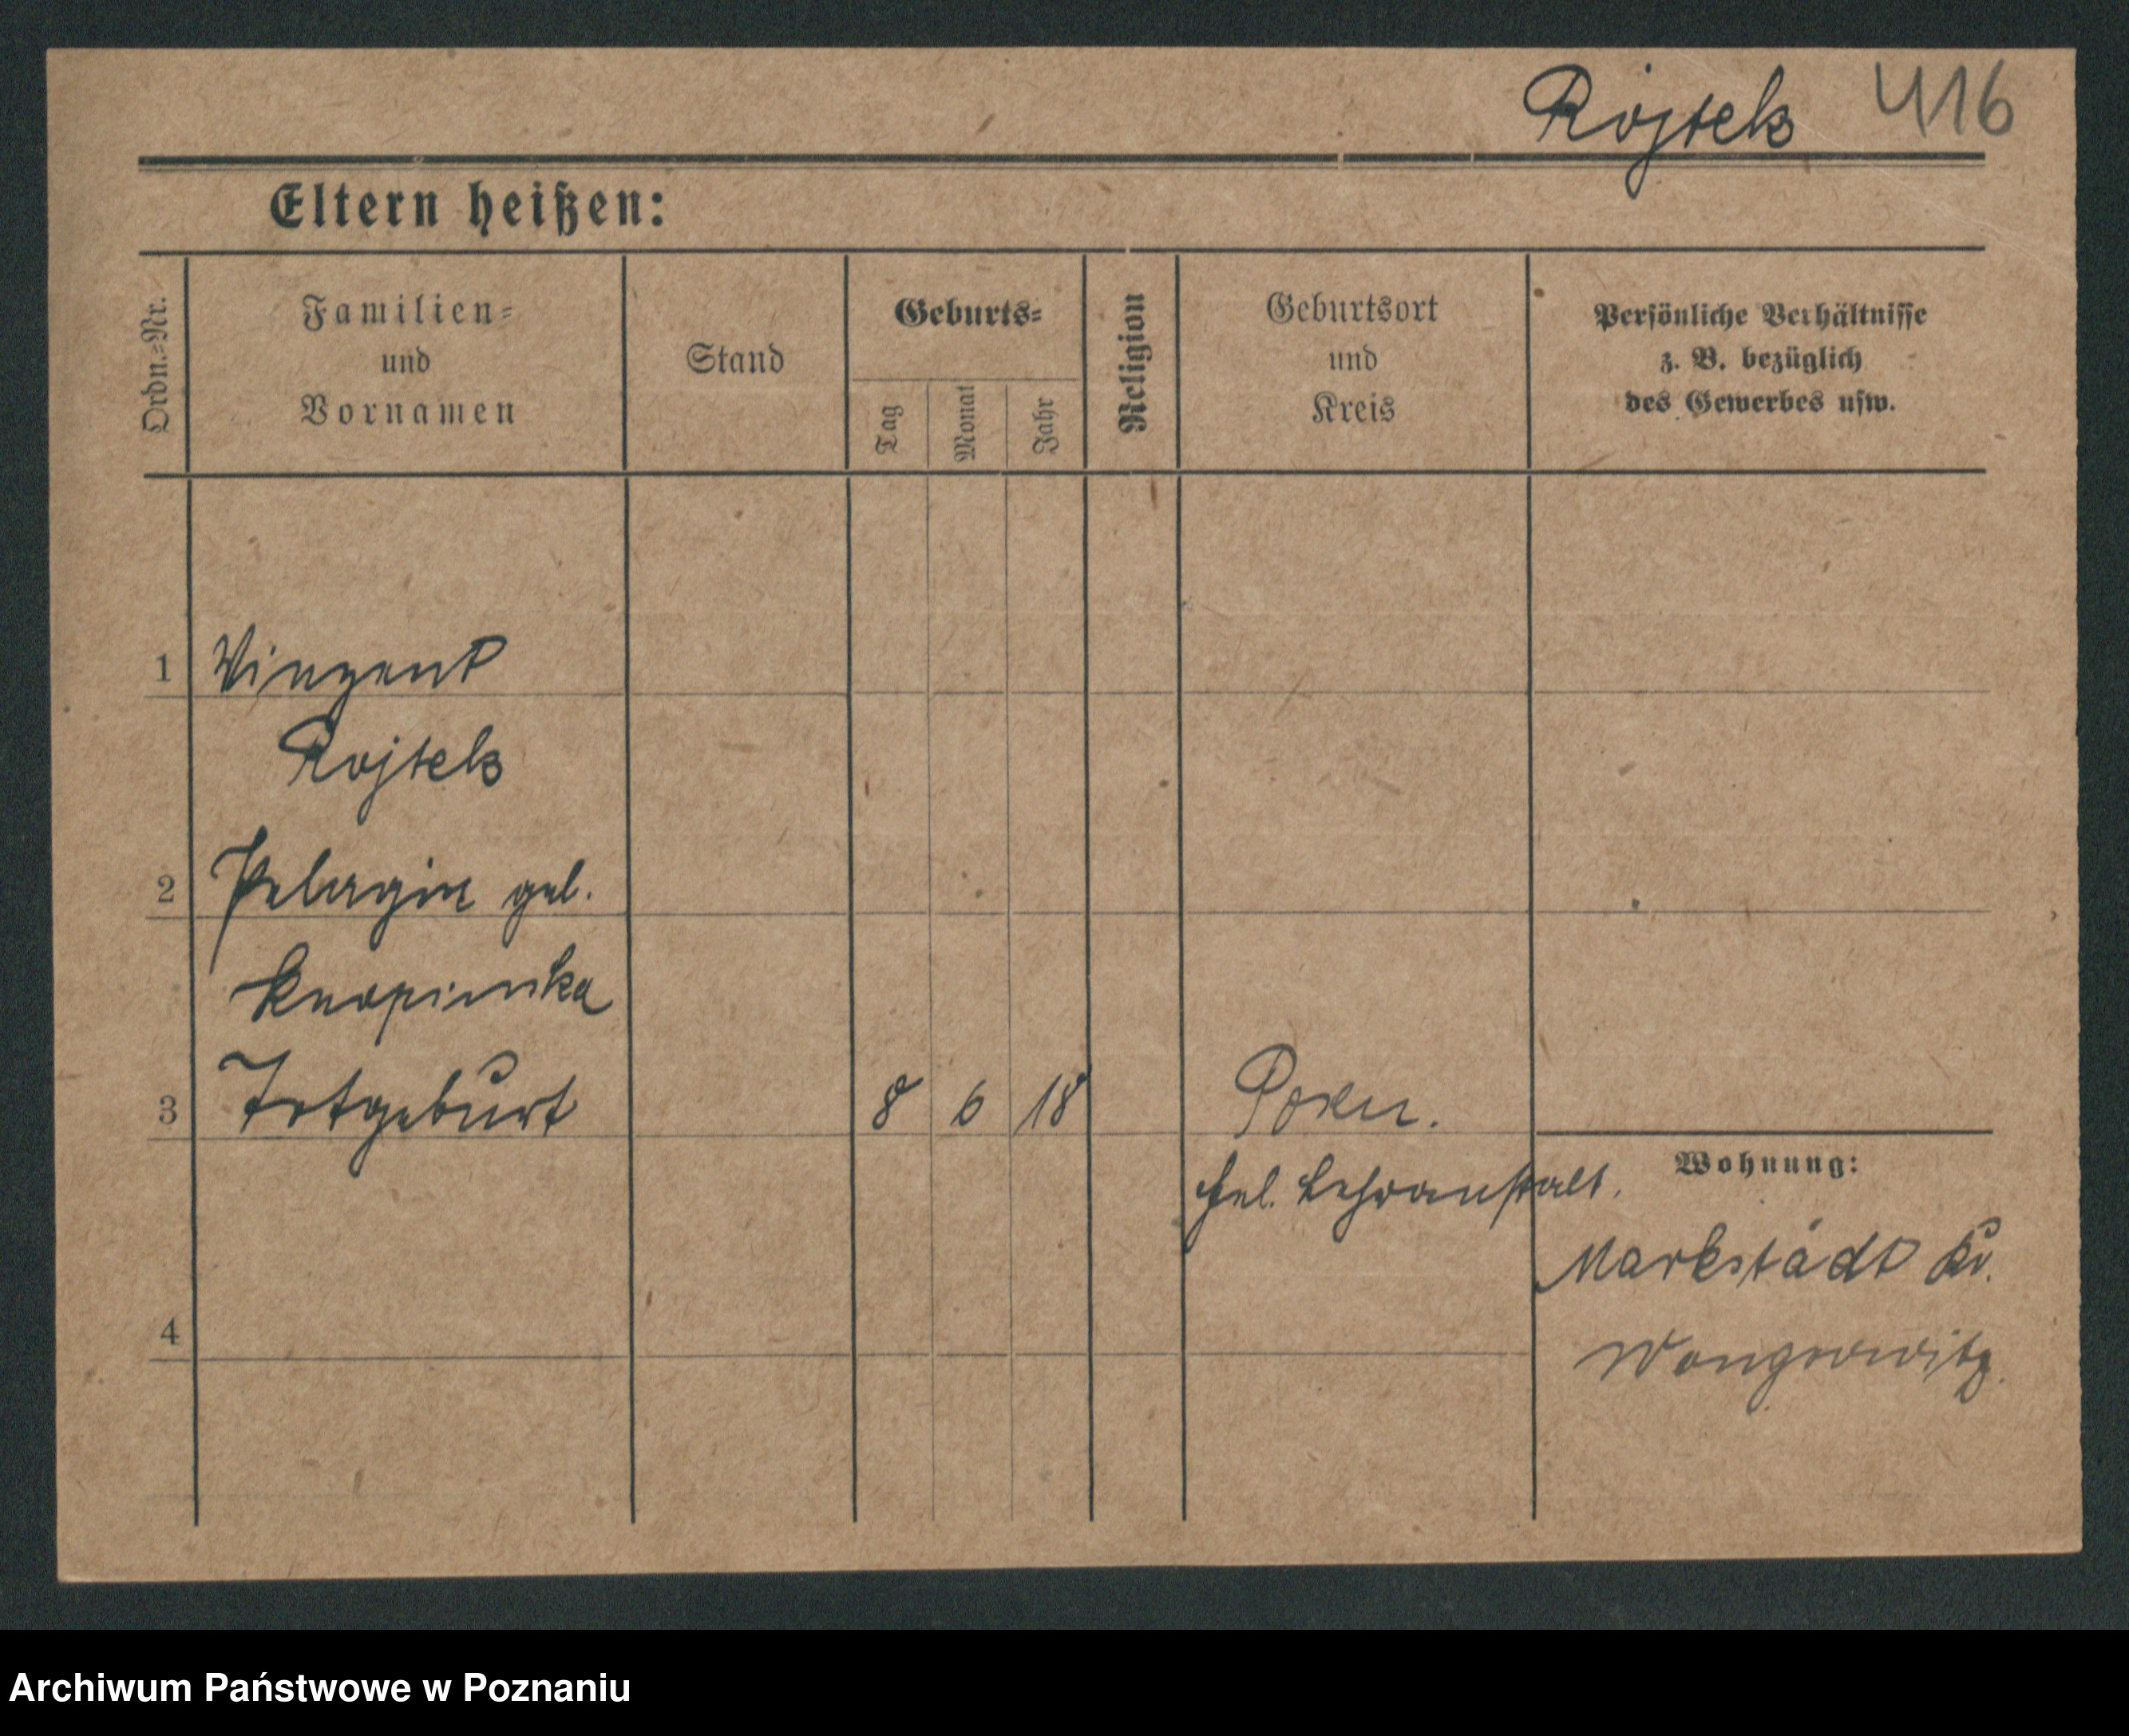 Rojtek 416
Eltern heißen:
Ordn.-Nr.
Familien-
und
Vornamen
Stand
Geburts-
Tag
Monat
Jahr
Religion
Geburtsort
und
Kreis
Persönliche Verhältnisse
z. B. bezüglich
des Gewerbes usw.
1 Vinzent
Rojtek
2 Pelagia geb.
3 Totgeburt 8 6 18 Posen.
Wohnung:
Heb. Lehranstalt.
Markstädt Kr.
4
Wongrowitz.
Archiwum Państwowe w Poznaniu